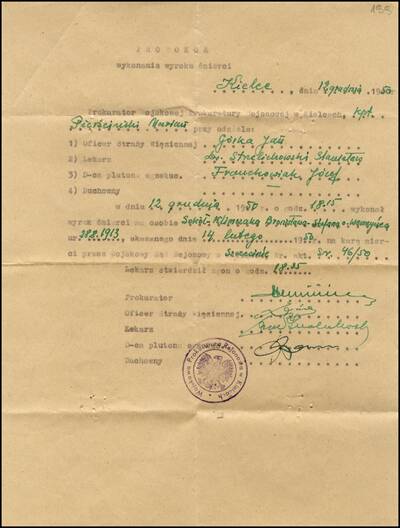 155
PROTOKÓŁ
wykonania wyroku śmierci
Kielce, dnia 12 grudnia 1950
Prokurator Wojskowej Prokuratury Rejonowej w Kielcach, kpt.
przy udziale:
1) Oficer Straży Więziennej Góska Jan
2) Lekarz
3) D-ca plutonu egzekuc. Franckowiak Józef
4) Duchowny
w dniu 12 grudnia 1950 o godz. 18.15 wykonał
wyrok śmierci na osobie
ur. 28.8.1913, skazanego dnia 14 lutego 1950 r. na karę śmier-
ci przez Wojskowy Sąd Rejonowy w nr. akt. Sr. 46/50
Lekarz stwierdził zgon o godz. 18.25
Prokurator
Oficer Straży Więziennej
Lekarz
D-ca plutonu
Duchowny
Wojskowa Prokuratura Rejonowa w Kielcach